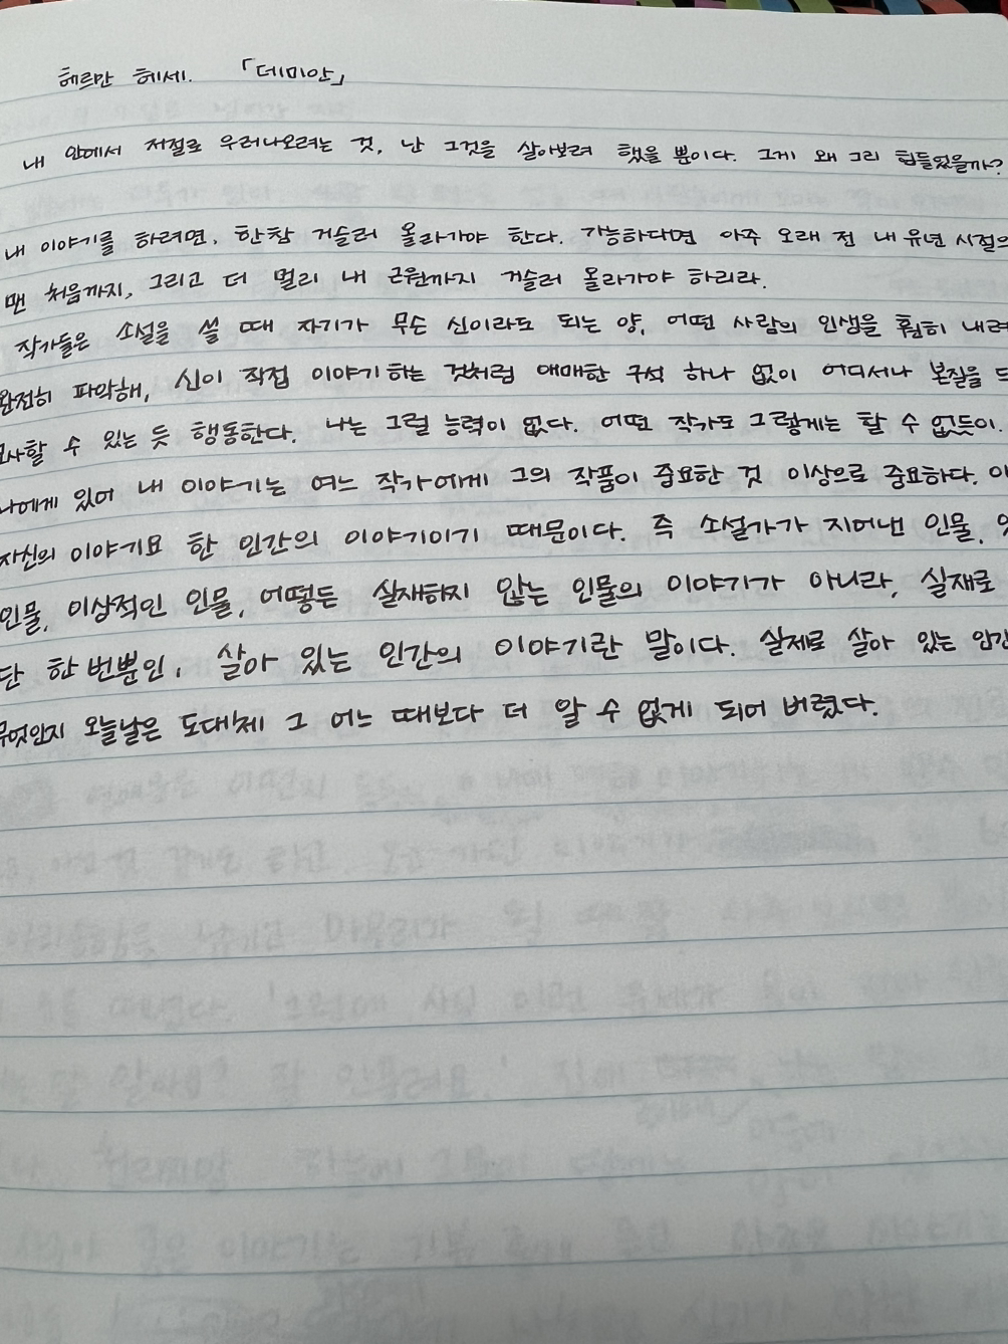 헤르만 헤세. 「데미안」
내 안에서 저절로 우러나오려는 것, 난 그것을 살아보려 했을 뿐이다. 그게 왜 그리 힘들었을까?
내 이야기를 하려면, 한참 거슬러 올라가야 한다. 가능하다면 아주 오래 전 내 유년 시절의
맨 처음까지, 그리고 더 멀리 내 근원까지 거슬러 올라가야 하리라.
작가들은 소설을 쓸 때 자기가 무슨 신이라도 되는 양, 어떤 사람의 인생을 훤히 내려
완전히 파악해, 신이 직접 이야기하는 것처럼 애매한 구석 하나 없이 어디서나 본질을
묘사할 수 있는 듯 행동한다. 나는 그럴 능력이 없다. 어떤 작가도 그렇게는 할 수 없듯이.
나에게 있어 내 이야기는 여느 작가에게 그의 작품이 중요한 것 이상으로 중요하다.
자신의 이야기요 한 인간의 이야기이기 때문이다. 즉 소설가가 지어낸 인물,
인물, 이상적인 인물, 어떻든 실재하지 않는 인물의 이야기가 아니라, 실재로
단 한 번뿐인, 살아 있는 인간의 이야기란 말이다. 실제로 살아 있는 인간
무엇인지 오늘날은 도대체 그 어느 때보다 더 알 수 없게 되어 버렸다.